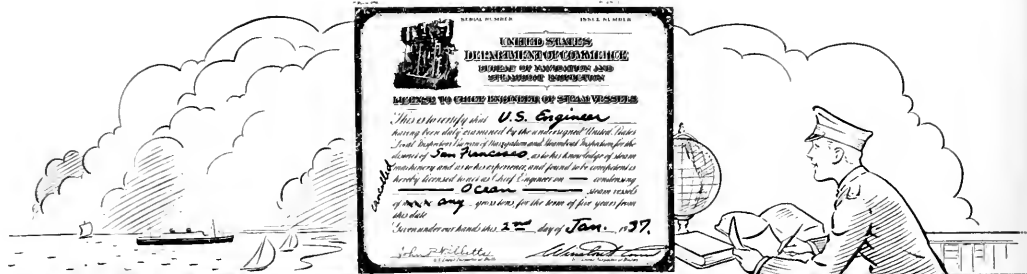 SERIAL NUMBER ISSUE NUMBER
UNITED STATES
DEPARTMENT OF COMMERCE
BUREAU OF NAVIGATION AND
STEAMBOAT INSPECTION
LICENSE TO CHIEF ENGINEER OF STEAM VESSELS
This is to certify that U.S. Engineer
having been duly examined by the undersigned United States
Local Inspectors Bureau of Navigation and Steamboat Inspection, for the
district of San Francisco, as to his knowledge of steam
machinery and as to his experience, and found to be competent is
hereby licensed to act as Chief Engineer on condensing
Ocean steam vessels
of xxx any gross tons for the term of five years from
this date
Given under our hands this 2nd day of Jan. 1937.
cancelled